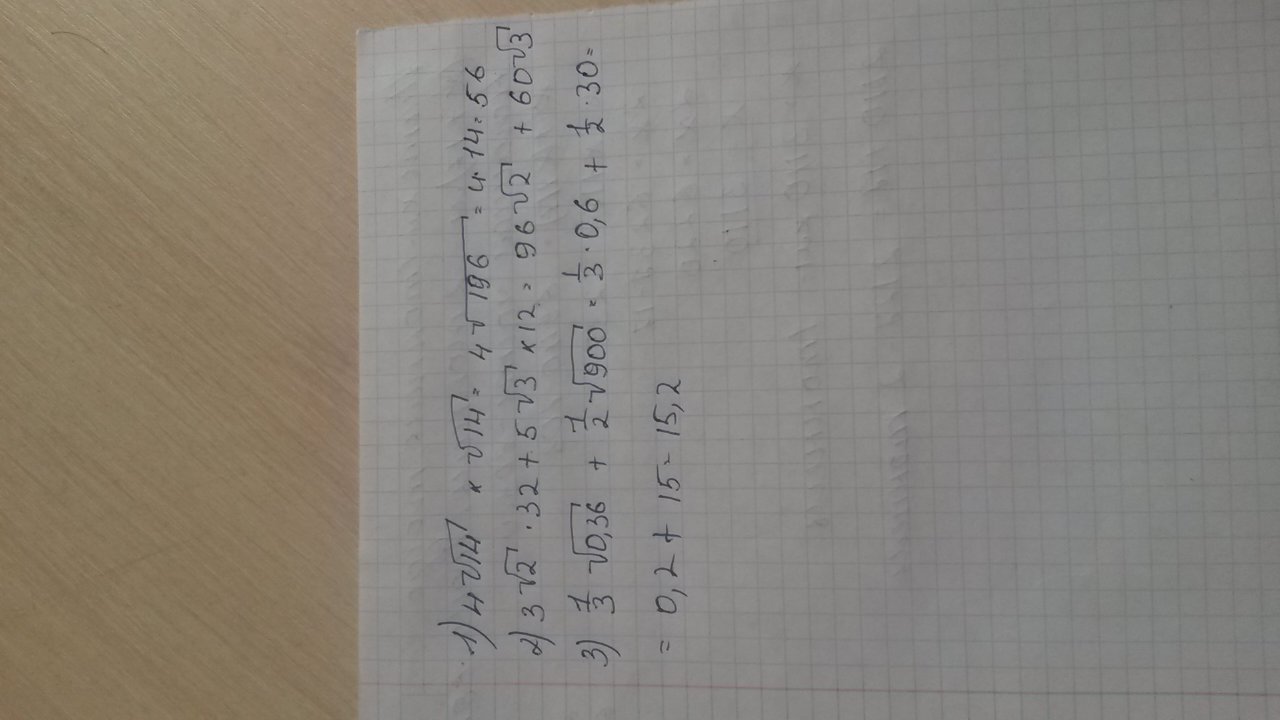 1) 4√14 × √14 = 4√196 = 4·14 = 56
2) 3√2 · 32 + 5√3 × 12 = 96√2 + 60√3
3) 1/3 √0,36 + 1/2 √900 = 1/3 · 0,6 + 1/2 · 30 =
= 0,2 + 15 = 15,2